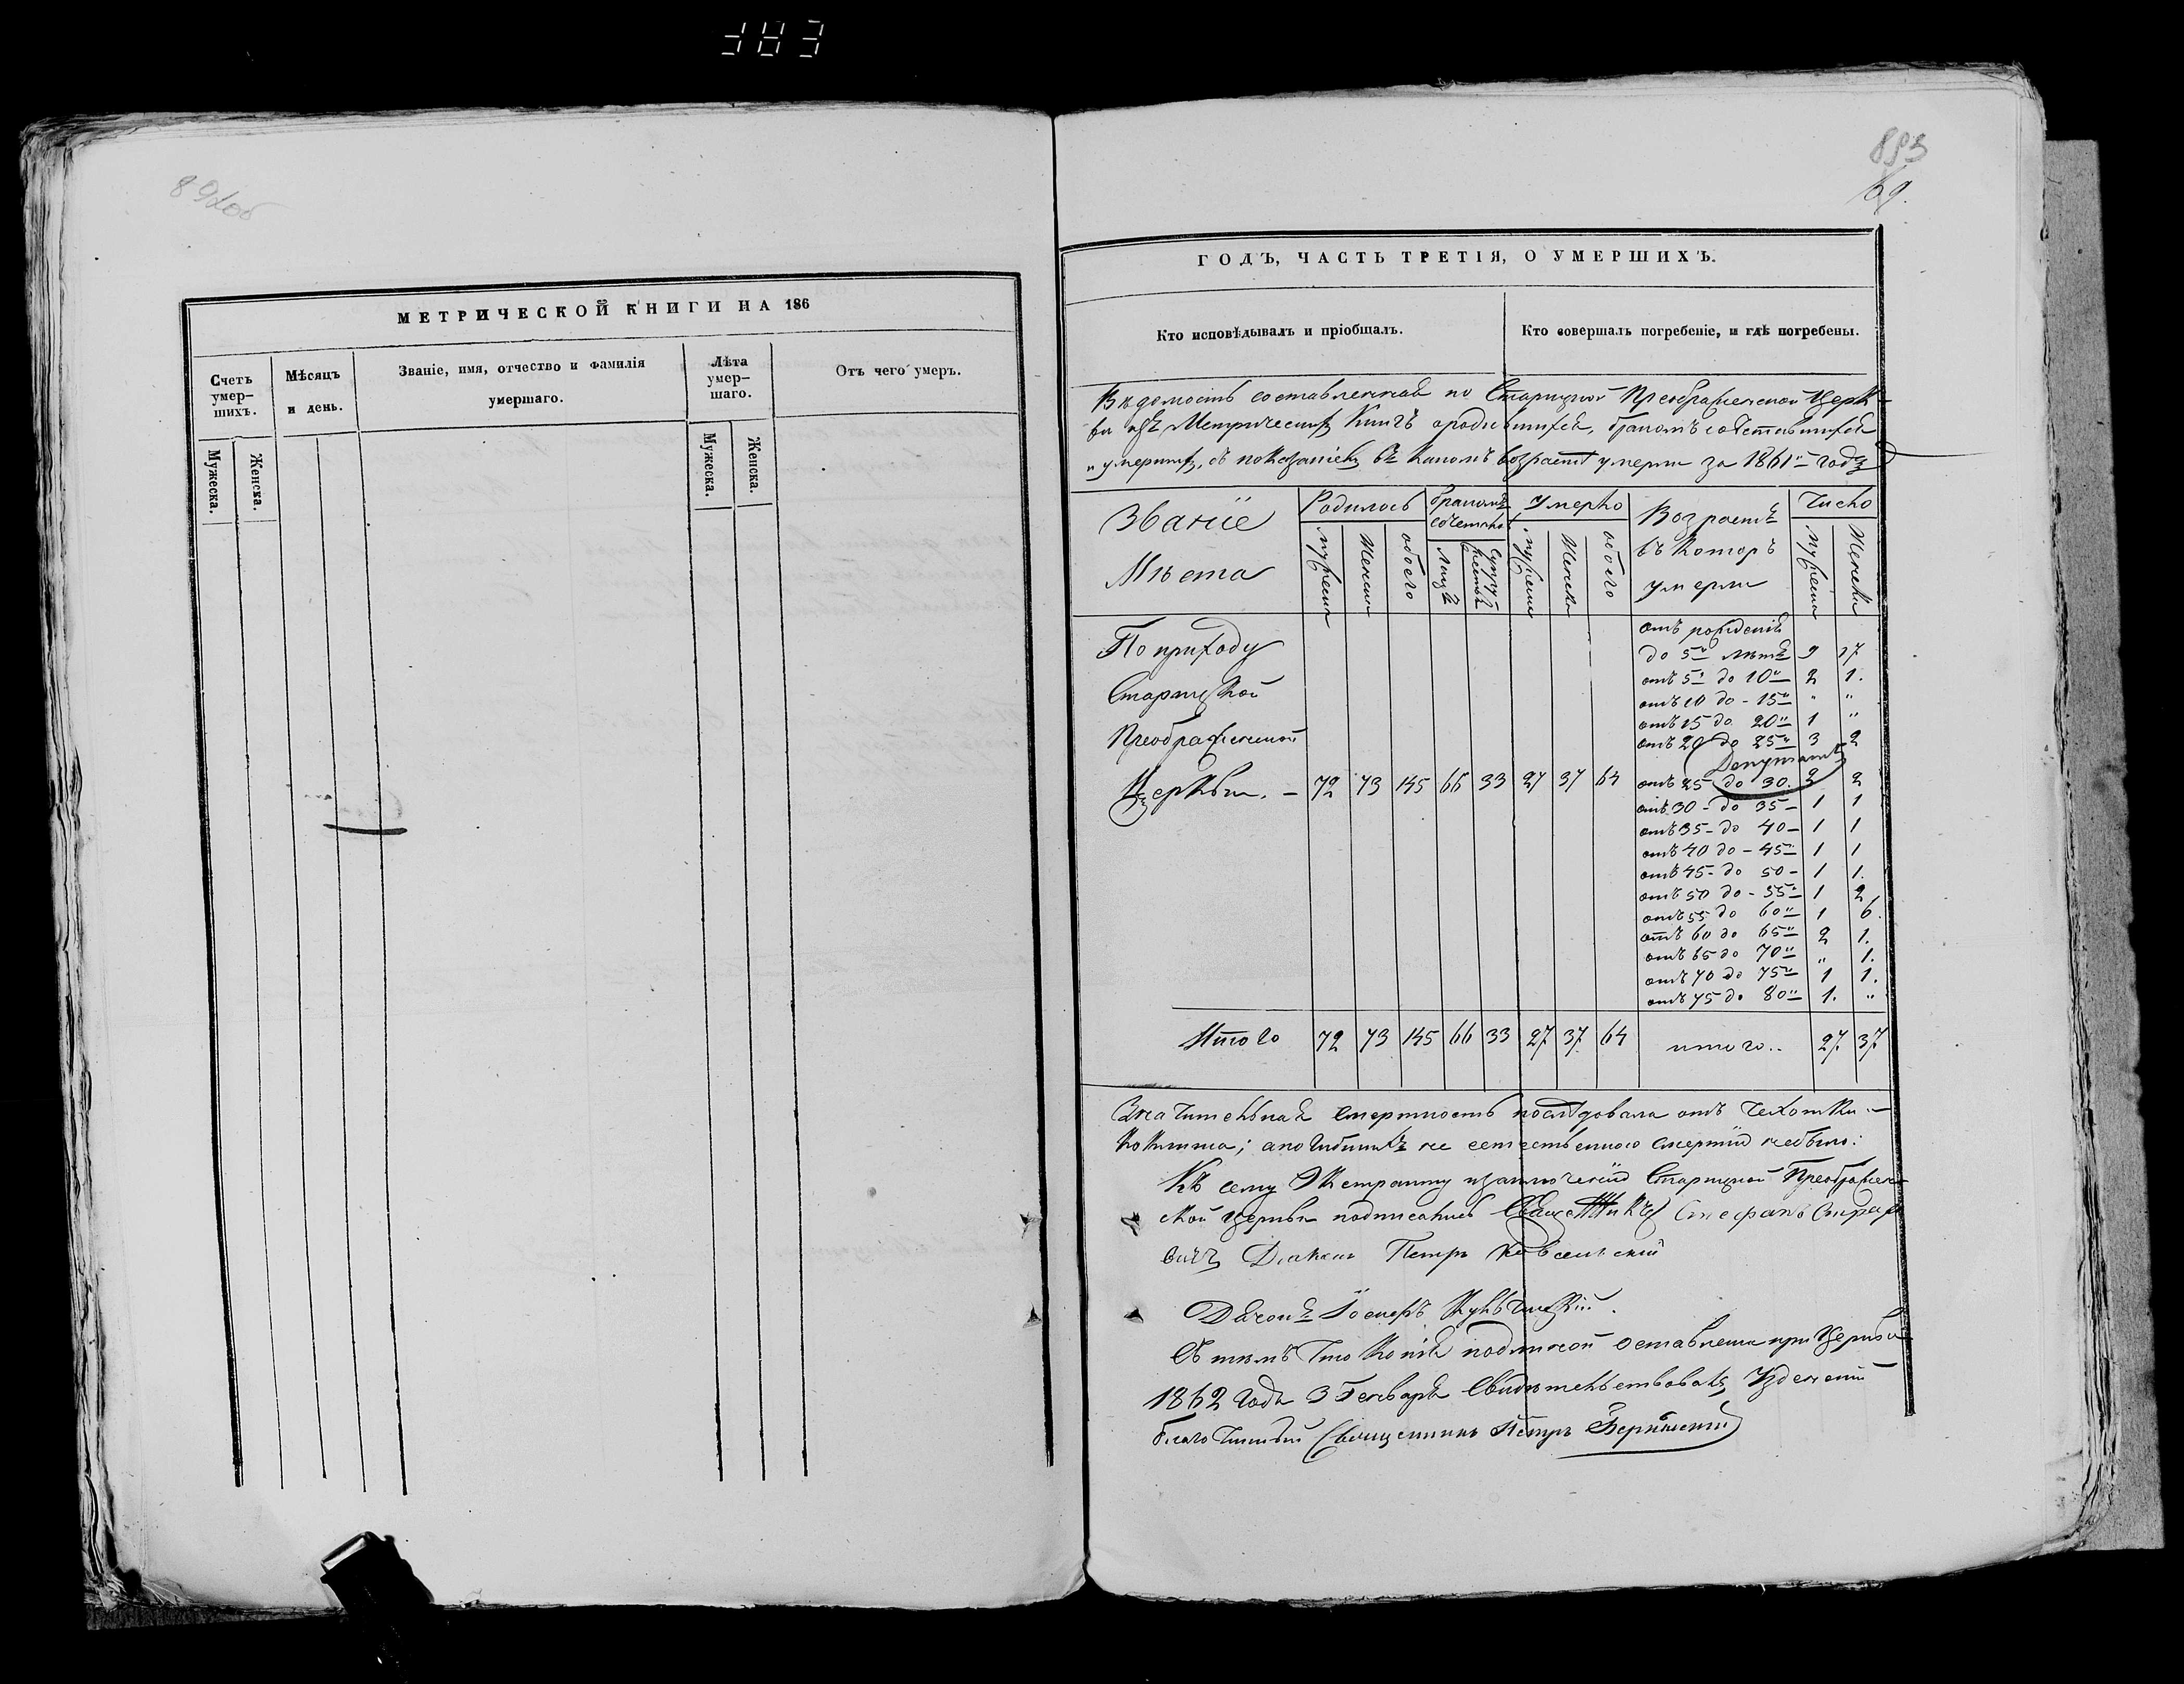 893
69.
МЕТРИЧЕСКОЙ КНИГИ НА 186
Счетъ умер-шихъ.
Мужеска.
Женска.
Мѣсяцъ и день.
Званіе, имя, отчество и фамилія умершаго.
Лѣта умер-шаго.
Мужеска.
Женска.
Отъ чего умеръ.
ГОДЪ, ЧАСТЬ ТРЕТІЯ, О УМЕРШИХЪ.
Кто исповѣдывалъ и пріобщалъ.
Кто совершалъ погребеніе, и гдѣ погребены.
Вѣдомость составленная по Старицкой Преображенской Церк-
ви изъ Метрическихъ Книгъ о родившихся, бракомъ сочетавшихся
и умершихъ, съ показаніемъ въ какомъ возрастѣ умерли за 1861й годъ
Званіе Мѣста
Родилось
мужеска
женска
обоего
бракомъ сочетано
лицъ
супружествъ
Умерло
мужеска
женска
обоего
Возрастъ въ которъ умерли
Число
мужеска
женска
По приходу
Старицкой
Преображенской
Церкви. – 72 73 145 66 33 27 37 64
отъ рожденія
до 5и лѣтъ 9 17
отъ 5и до 10и 2 1.
отъ 10 до - 15и " "
отъ 15 до 20и 1 "
отъ 20 до 25и 3 2
Депутатъ
отъ 25 до 30. 2 2
отъ 30 - до 35 - 1 1
отъ 35 - до 40 - 1 1
отъ 40 до - 45и 1 1
отъ 45 - до 50 - 1 1.
отъ 50 до - 55и 1 2
отъ 55 до 60и 1 6.
отъ 60 до 65и 2 1.
отъ 65 до 70и " 1.
отъ 70 до 75и 1 1.
отъ 75 до 80и 1. "
Итого 72 73 145 66 33 27 37 64 итого.. 27. 37
Значительная смертность послѣдовала отъ чехотки -
коклюша; а погибшихъ не естественною смертію небыло:
Къ сему Экстракту изъ заключеній Старицкой Преображен-
ской церкви подписались Священникъ Стефанъ
Діаконъ Петръ
Дячокъ Іосифъ
Въ томъ что копія подписной оставлена при Церкви
1862 года 3 Генваря Свидѣтельствовалъ, Уѣздный
благочинный Священникъ Петръ